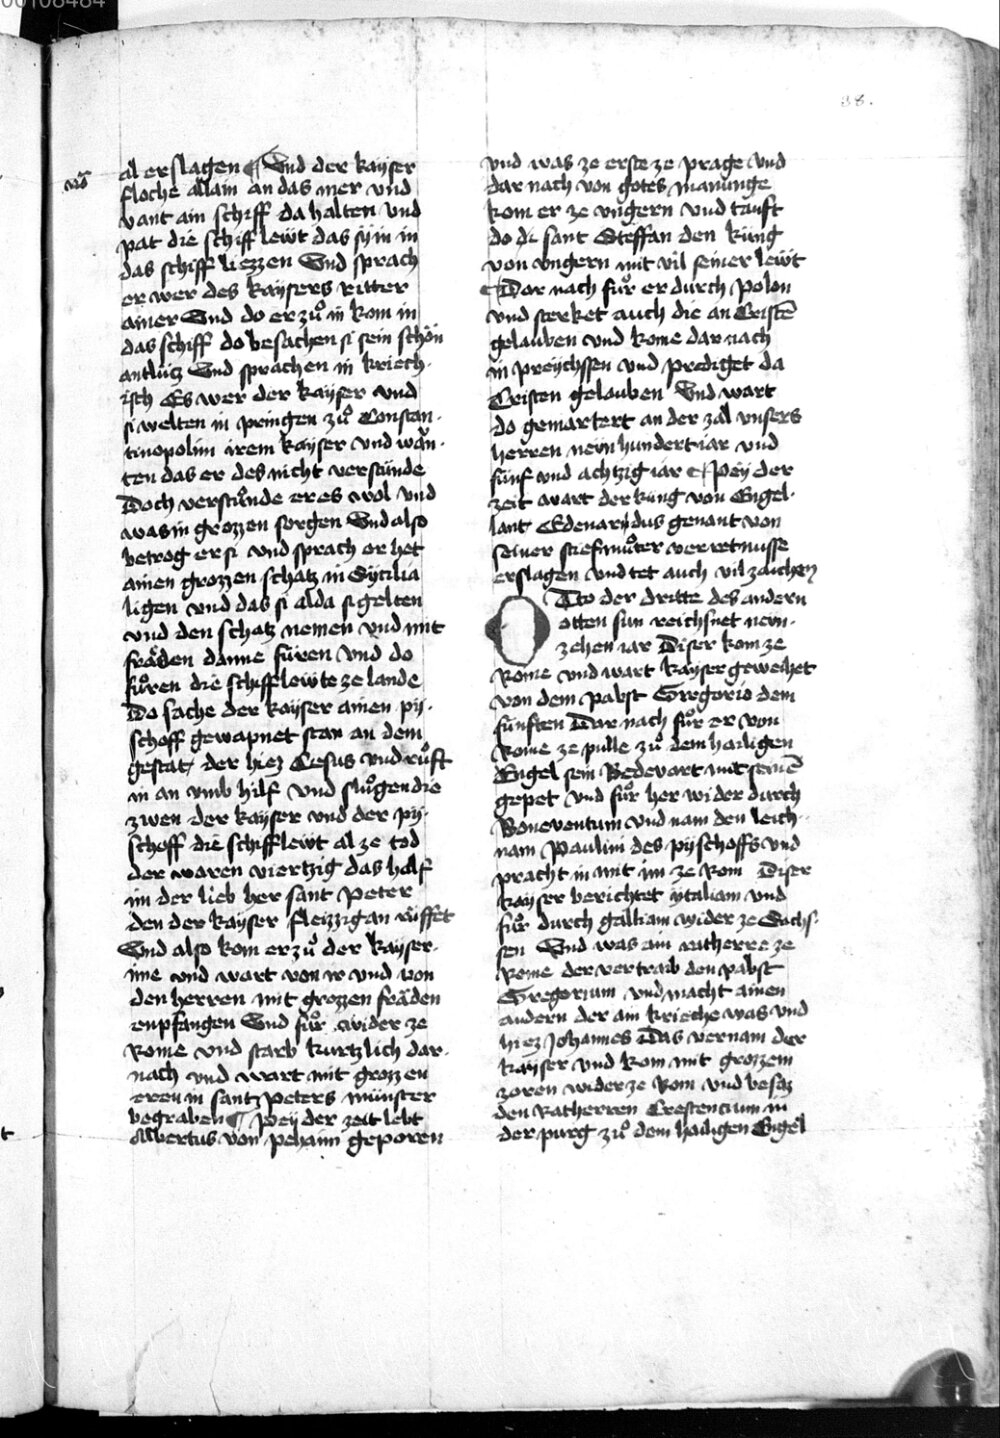 00108484
38.
al erslagen ¶ Vnd der kayser
floche allain an das mer vnd
vant ain schiff da halten vnd
pat die schifflewt das sy in in
das schiff liezzen Vnd sprach
er wer des kaysers ritter
ainer Vnd do er zuͦ in kom in
das schiff do besachen si sein schön
antlütz Vnd sprachen in kriech-
isch Es wer der kayser vnd
si welten in pringen zuͦ Constan-
tinopolim irem kayser vnd wän-
ten das er des nicht verstünde
Doch verstuͦnde er es wol vnd
was in grozzen sorgen Vnd also
betrog er si vnd sprach er het
ainen grozzen schatz in Sycilia
ligen vnd das si alda sigelten
vnd den schatz nemen vnd mit
fräden danne füren vnd do
fuͦren die schifflewte ze lande
Do sache der kayser ainen py-
schoff gewapnet stan an dem
gestat der hiez Cesus vnd ruͦft
in an vmb hilf vnd sluͦgen die
zwen der kayser vnd der py-
schoff die schifflewt al ze tod
der waren viertzig das half
im der lieb her sant Peter
den der kayser fleizzig an ruffet
Vnd also kom er zuͦ der kayser-
inne vnd wart von ir vnd von
den herren mit grozzen fräden
enpfangen Vnd fuͦr wider ze
Rome vnd starb kurtzlich dar-
nach vnd wart mit grozzen
eren in sant Peters münster
begraben ¶ Pey der zeit lebt
Albertus von pehaim geporen
vnd was ze erste ze prage vnd
dar nach von gotes manunge
kom er ze vngern vnd tauft
do di sant Steffan den küng
von vngern mit vil seiner lewt
¶ Dar nach fuͦr er durch polon
vnd sterket auch die an Cristē
gelauben vnd kome dar nach
in preychssen vnd prediget da
Cristen gelauben Vnd wart
do gemartert an der zal vnsers
herren newn hundert iar vnd
fünf vnd achtzig iar ¶ Pey der
zeit wart der küng von Engel-
lant Edenarydus genant von
seiner stiefmuͦter verretnusse
erslagen vnd tet auch vil zaichen
Otto der dritte des andern
otten sun reichsnet newn-
zehen iar Diser kom ze
Rome vnd wart kayser geweihet
von dem pabst Gregorio dem
fünften Dar nach fuͦr er von
Rome ze pulle zuͦ dem hailigen
Engel sein Bedevart mit seinē
gepet vnd fuͦr her wider durch
Boneventum vnd nam den leich-
nam Paulini des pyschoffs vnd
pracht in mit im ze Rom Diser
kayser berichtet ytaliam vnd
fuͦr durch galliam wider ze Sachs-
sen Vnd was ain ratherre ze
Rome der vertraib den pabst
Gregorium vnd macht ainen
andern der ain krieche was vnd
hiez Johannes Das vernam der
kayser vnd kom mit grozzem
zoren wider ze Rom vnd besaz
den Ratherren Crestencium in
der purg zuͦ dem hailigen Engel